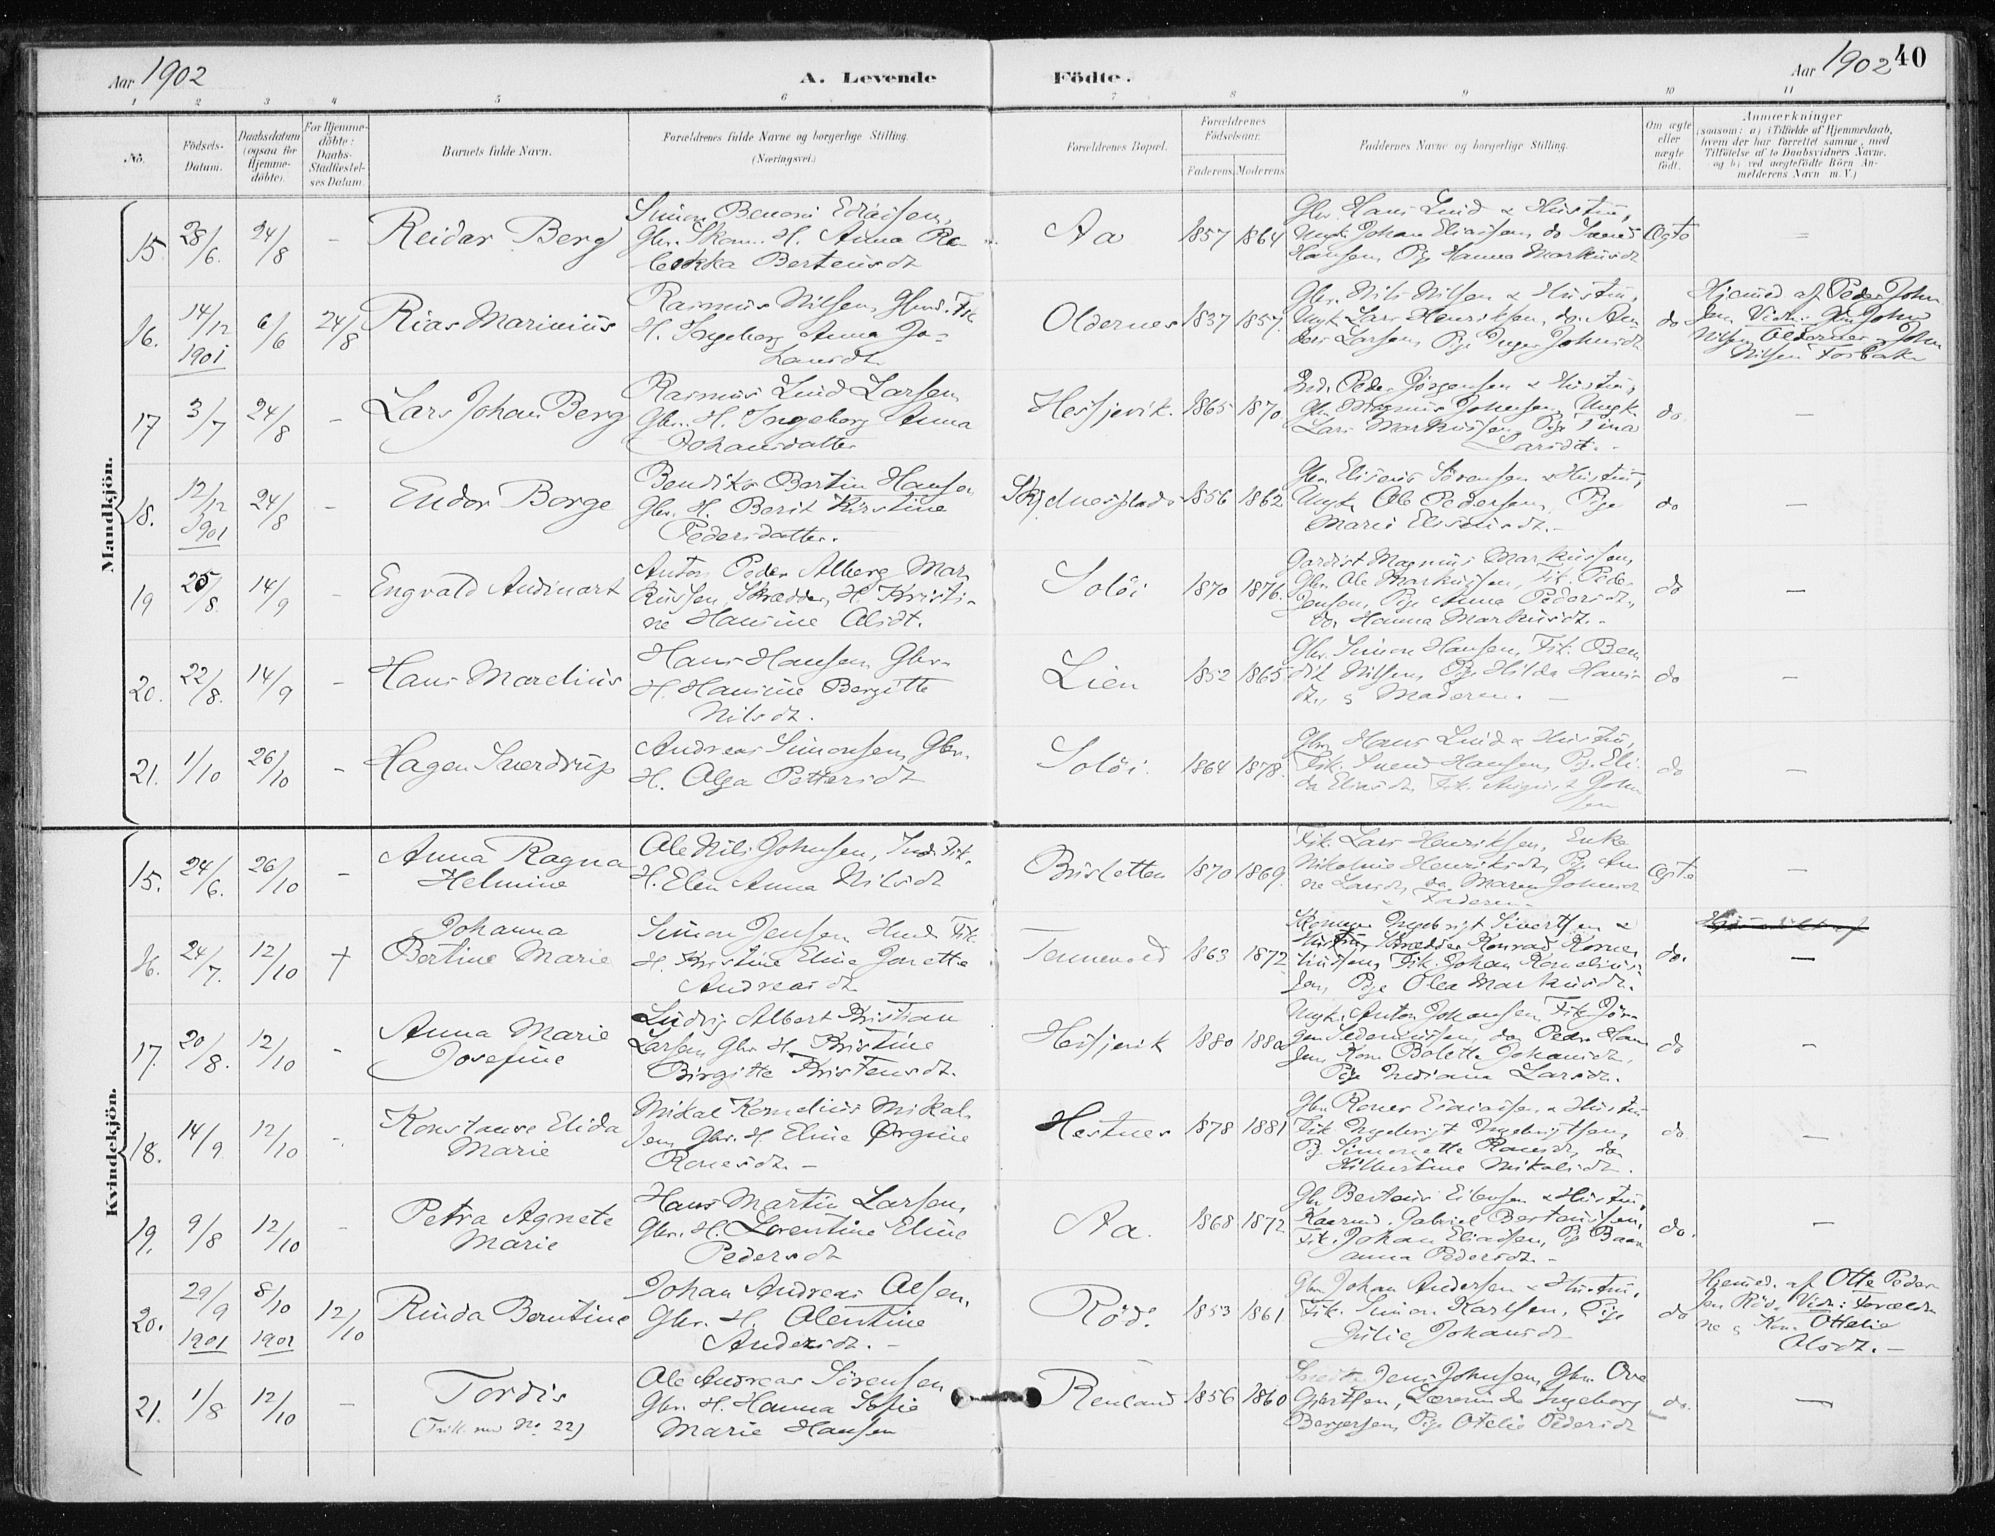 Aar 1902
A. Levende
Födte.
Aar 1902
40
1 2 3 4 5 6 7 8 9 10 11
No.
Födsels-
Datum.
Daabsdatum
(ogsaa for
Hjemme-
döbte).
For Hjemme-
döbte:
Daabs-
Stadfæstel-
ses Datum.
Barnets fulde Navn.
Forældrenes fulde Navne og borgerlige Stilling.
(Næringsvei.)
Forældrenes Bopæl.
Forældrenes
Födselsaar.
Faderens. Moderens.
Faddernes Navne og borgerlige Stilling.
Om ægte
eller
uægte
födt.
Anmærkninger
(saasom: a) i Tilfælde af Hjemmedaab,
hvem der har forrettet samme, med
Tilföielse af to Daabsvidners Navne,
og b) ved uægtefödte Börn An-
melderens Navn m. V.)
Mandkjön.
15. 28/6. 24/8 – Reidar Berg
Simon Benoni Eliasen,
Gbr. H. Anna Re
bekka Bertensdt
Aa 1857 1864
Gbr. Hans Lind & Hustru,
Ungk. Johan Eliassen, do Svend
Hansen, Pige Hanna Markusdt
Ægte
16. 14/12 1901 6/6 24/8 Rias Marinius
Rasmus Nilsen, Fik.
H. Ingeborg Anna Jo-
hansdt.
Oldernes 1837 1857.
Gbr. Nils Nilsen & Hustru,
Ungk. Lars Henriksen, do. An
ders Larsen, Pige Inger Johnsdt
do
Hjemmed af Peder John
sen Vidn: John
Nilsen Oldernes, John
Nilsen Forbakn
17 3/7 24/8 – Lars Johan Berg
Rasmus Lind Larsen,
Gbr. H. Ingeborg Anna
Johansdatter
Hessjevik. 1865 1870
Peder Jörgensen & Hustru,
Gbr. Magnus Johnsen, Ungk.
Lars Markussen, Pige Tina
Larsdt. –
do. –
18. 12/12 1901 24/8 – Endor Borge
Bendiks Bertin Hansen
Gbr. H. Berit Kirstine
Pedersdatter.
Skjelnesplads 1856 1862
Gbr. Eliseus Sörensen & Hustru,
Ungk. Ole Pedersen, Pige
Marie Eliseusdt. –
do –
19 25/8. 14/9 – Engvald Andinart
Anton Peder Alberg Mar
kussen, Skrædder, H. Kristi-
ne Hansine Olsdt.
Solöi 1870 1876.
Gardist Magnus Markussen,
Gbr. Ole Markussen, Fik. Peder
Jensen, Pige Anna Pedersdt.,
do Hanna Markusdt. –
do –
20. 22/8. 14/9 – Hans Marelius
Hans Hansen, Gbr.
H. Hansine Bergitte
Nilsdt.
Lien 1852 1865
Gbr. Simon Hansen, Fik. Ben
dik Nilsen, Pige Hilda Hans-
dt., g Moderen. –
do –
21. 1/10 26/10 – Hagen Sverdrup
Andreas Simonsen, Gbr.
H. Olga Pettersdt
Solöi. 1864 1878.
Gbr. Hans Lind & Hustru,
Fik. Svend Hansen, Pg. Eli
da Eliasdt, Fik. August John
sen
do –
Kvindekjön.
15. 24/6. 26/10 – Anna Ragna
Helmine
Ole Nils Johnsen, Ind. Fik.
H. Elen Anna Nilsdt
Bursletten 1870 1869.
Fik. Lars Henriksen, Enke
Nikoline Henriksdt, Pg. An
ne Larsdt, do Maren Johnsdt
& Faderen
Ægte –
16. 24/7. 12/10 † Johanna
Bertine Marie
Simon Jensen Fik.
H. Kristine Eline Jonette
Andreasdt.
Tennevold 1863 1872
Ingebrigt Sivertsen &
Hustru, Skrædder Konrad Korne
liussen, Fik. Johan Kornelius-
sen, Pige Olea Markusdt.
do. –
17. 20/8. 12/10 – Anna Marie
Josefine
Ludvig Albert Kristian
Larsen, Gbr. H. Kristine
Birgitte Kristensdt.
Hessjevik 1880 1880
Ungk. Anton Johansen, Fik. Jör-
gen Pedersen, do Peder Han
sen, Kone Bolette Johansdt,
Pige Indiana Larsdt.
do –
18. 14/9 12/10 –. Konstanse Elida
Marie
Mikal Kornelius Mikal-
sen, Gbr. H. Eline Ørgine
Ronesdt. –
Hestnes 1878 1881
Gbr. Rones Esaiassen & Hustru
Fik. Ingebrigt Ingebrigtsen,
Pg. Simonette Ronesdt, do
Hilbertine Mikalsdt.
do –
19. 9/8 12/10 – Petra Agnete
Marie
Hans Martin Larsen,
Gbr. H. Lorentine Eline
Pedersdt
Aa. 1868 1872
Gbr. Berteus Eilevsen & Hustru,
Gabriel Berteussen,
Fik. Johan Eliassen, Pg.
anna Pedersdt. –
do. –
20. 29/9 1901 8/10 1901 12/10 Rinda Berntine
Johan Andreas Olsen,
Gbr. H. Olentine
Andersdt. –
Röd. 1853 1861
Gbr. Johan Andersen & Hustru,
Fik. Simon Karlsen, Pige
Julie Johansdt
do
Hjemmed. af Otte Peder
sen Röd. Vidn: Foræld
ne g Kone Ottelie
Olsdt. –
21. 1/8 12/10 – Tordis
(Trill. med No. 22)
Ole Andreas Sörensen
Gbr. H. Hanna Sofie
Marie Hansen
Renland 1856 1860
Jens Johnsen, Gbr. Ove
Gjertsen, Lærerinde Ingeborg
Bergersen, Pige Otelie Pedersdt
do. –